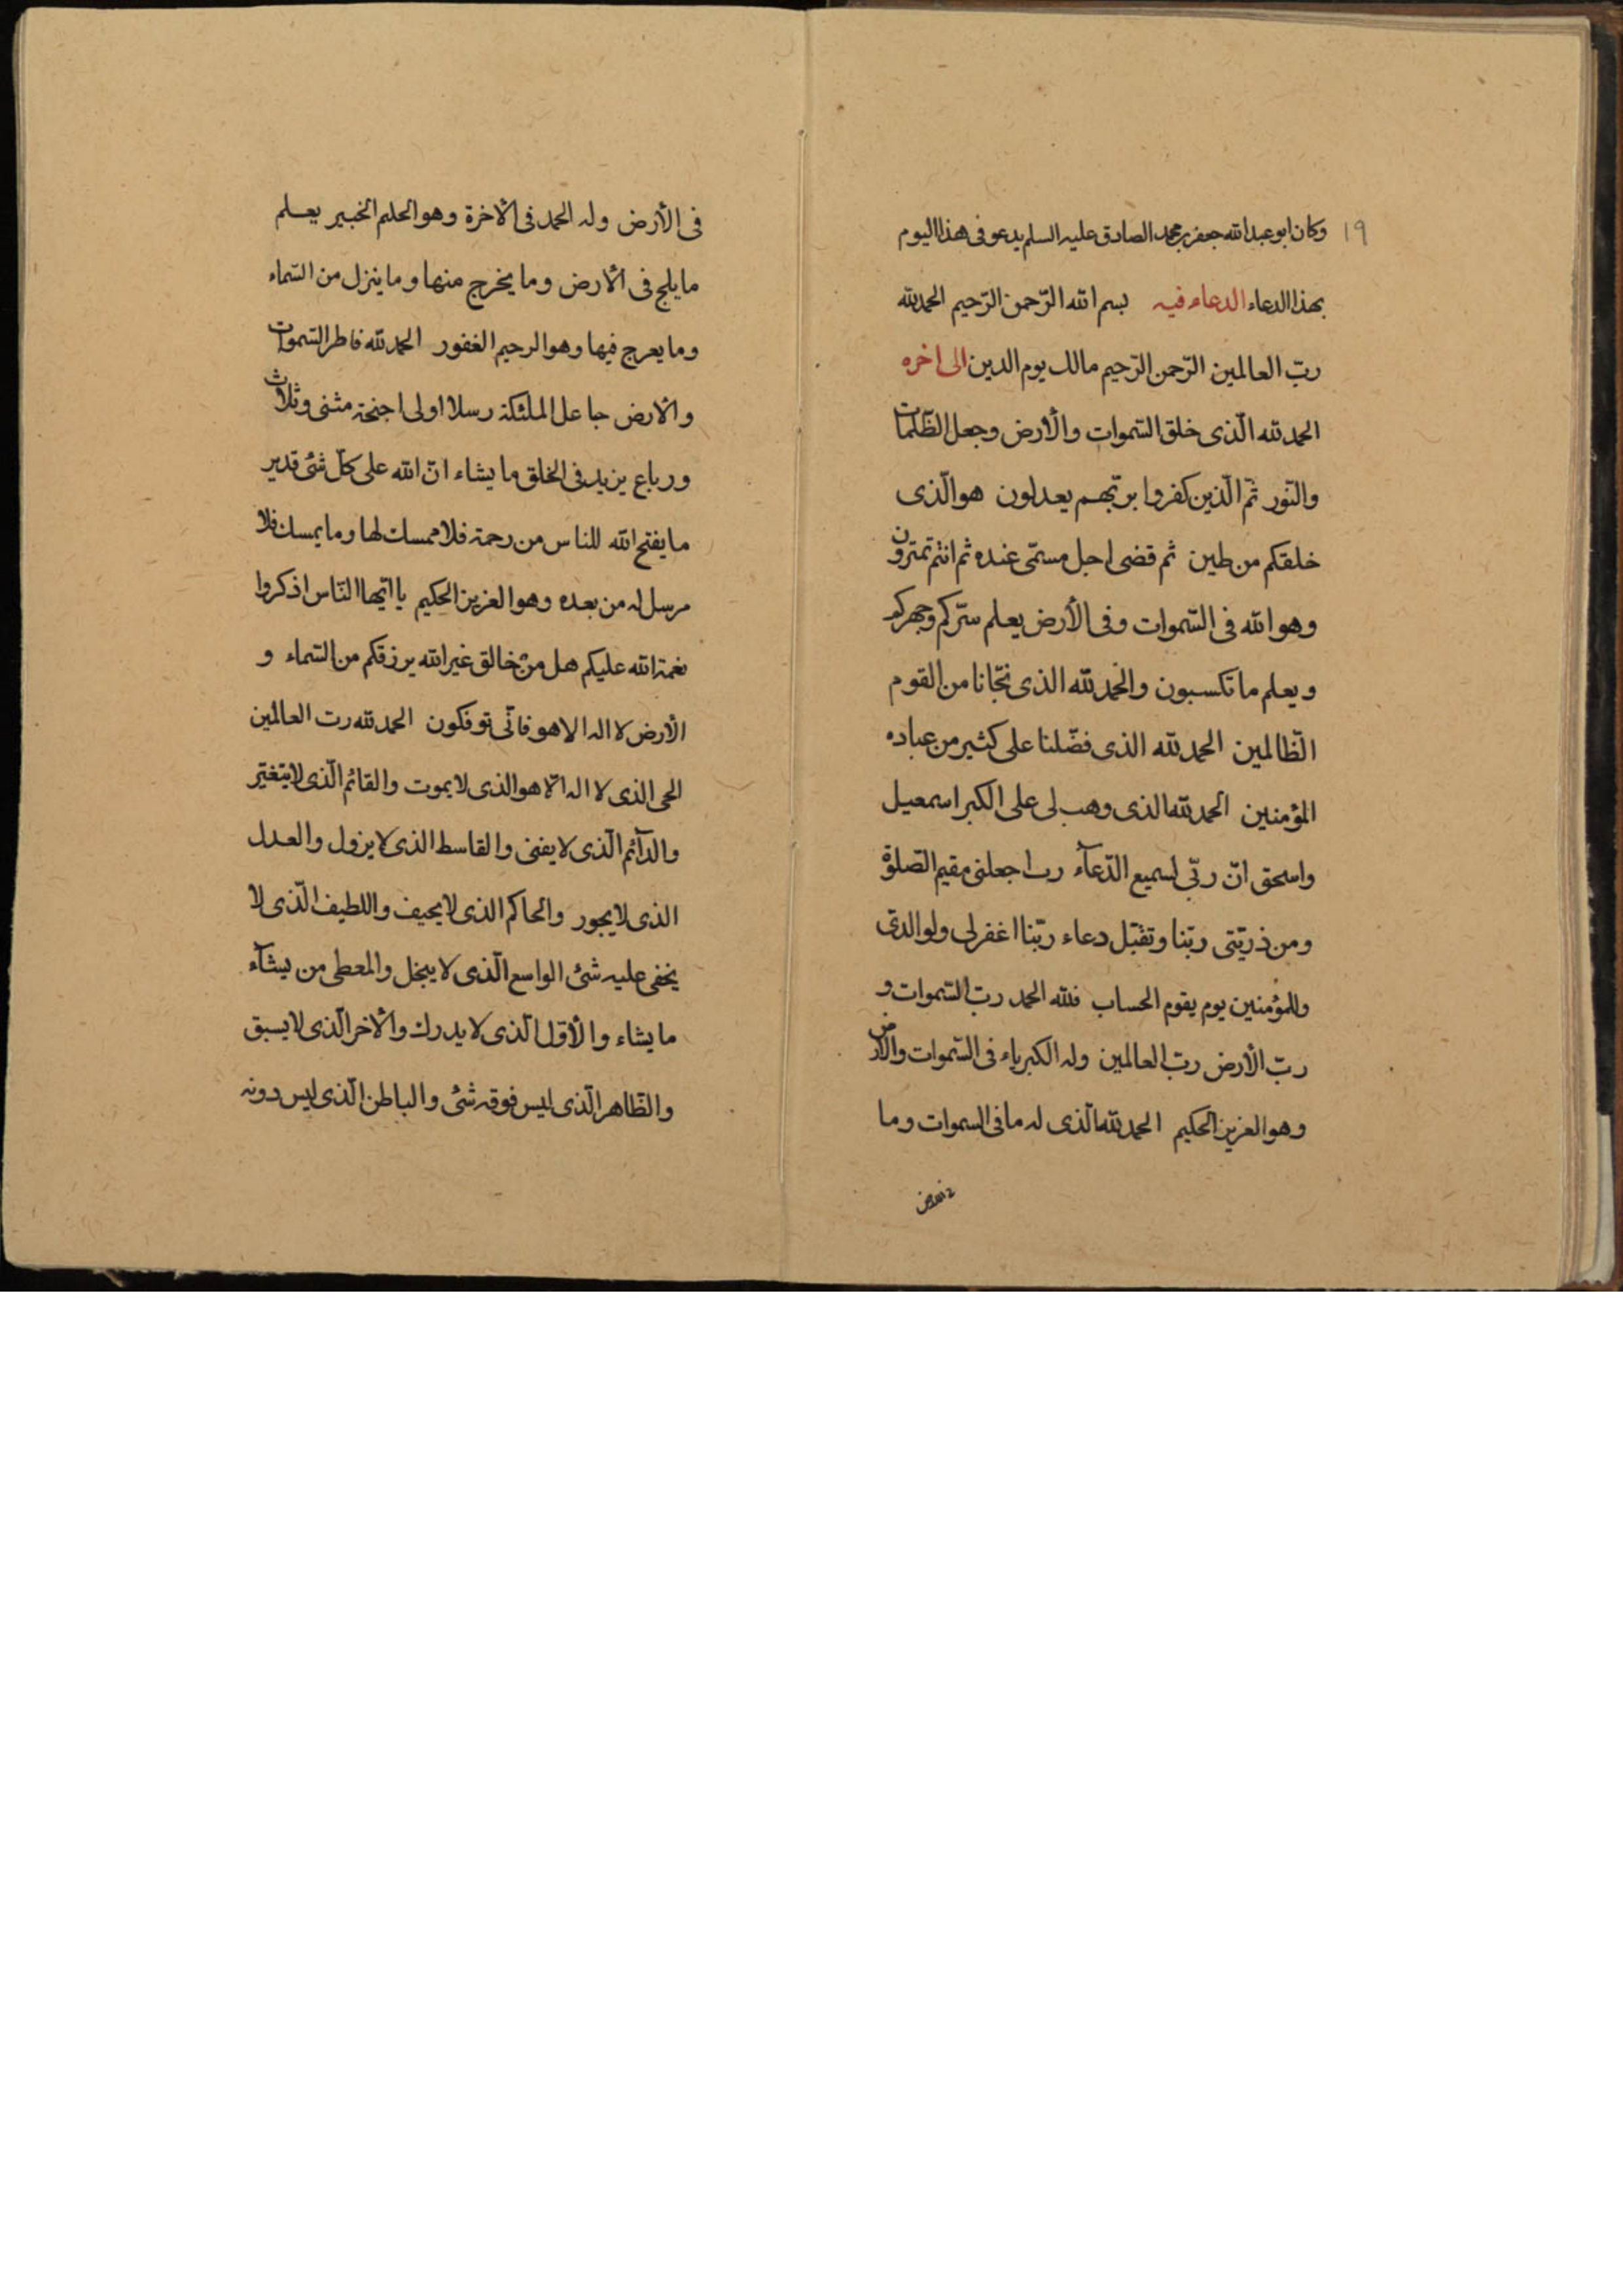 ١٩ وكان ابو عبد الله جعفر بن محمد الصادق عليه السلم يدعو فى هذا اليوم
بهذا الدعاء الدعاء فيه بسم الله الرّحمن الرّحيم الحمد لله
ربّ العالمين الرّحمن الرّحيم مالك يوم الدين الى اخره
الحمد لله الّذى خلق السّموات والأرض وجعل الظّلمات
والنّور ثمّ الّذين كفروا بربّهم يعدلون هو الّذى
خلقكم من طين ثم قضى اجل مسمّى عنده ثم انتم تمترون
وهو الله فى السّموات وفى الأرض يعلم سرّكم وجهركم
ويعلم ما تكسبون والحمد لله الذى نجّانا من القوم
الظّالمين الحمد لله الذى فضّلنا على كثير من عباده
المؤمنين الحمد لله الذى وهب لى على الكبر اسمعيل
واسحق انّ ربّى لسميع الدّعآء رب اجعلنى مقيم الصّلوة
ومن ذريّتى ربّنا وتقبّل دعاء ربّنا اغفر لى ولوالدىّ
وللمؤمنين يوم يقوم الحساب فلله الحمد ربّ السّموات و
ربّ الأرض ربّ العالمين وله الكبرياء فى السّموات والأرض
وهو العزيز الحكيم الحمد لله الّذى له ما فى السموات وما
فى الأرض وله الحمد فى الآخرة وهو الحليم الخبير يعلم
ما يلج فى الأرض وما يخرج منها وما ينزل من السّماء
وما يعرج فيها وهو الرحيم الغفور الحمد لله فاطر السّموات
والارض جاعل الملئكة رسلا اولى اجنحة مثنى وثلاث
ورباع يزيد فى الخلق ما يشاء انّ الله على كلّ شئ قدير
ما يفتح الله للناس من رحمة فلا ممسك لها وما يمسك فلا
مرسل له من بعده وهو العزيز الحكيم يا ايّها النّاس اذكروا
نعمة الله عليكم هل من خالق غير الله يرزقكم من السّماء و
الأرض لا اله الا هو فانّى توفكون الحمد لله رب العالمين
الحى الذى لا اله الّا هو الذى لا يموت والقائم الّذى لا يتغيّر
والدآئم الّذى لا يفنى والقاسط الذى لا يزول والعدل
الذى لا يجور والحاكم الذى لا يحيف واللطيف الّذى لا
يخفى عليه شئ الواسع الّذى لا يبخل والمعطى من يشآء
ما يشاء والأوّل الّذى لا يدرك والآخر الّذى لا يسبق
والظّاهر الّذى ليس فوقه شئ والباطن الّذى ليس دونه